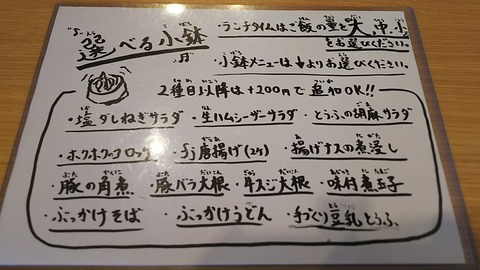 選べる小鉢
・ランチタイムはご飯の量を大、中、小
をお選びください。
・小鉢メニューは↓よりお選びください。
2種目以降は+200円で追加OK!!
・塩ダレねぎサラダ ・生ハムシーザーサラダ ・とうふの胡麻サラダ
・ホクホクコロッケ ・鶏唐揚げ(2ケ) ・揚げナスの煮浸し
・豚の角煮 ・豚バラ大根 ・牛スジ大根 ・味付煮玉子
・ぶっかけそば ・ぶっかけうどん ・手づくり豆乳とうふ